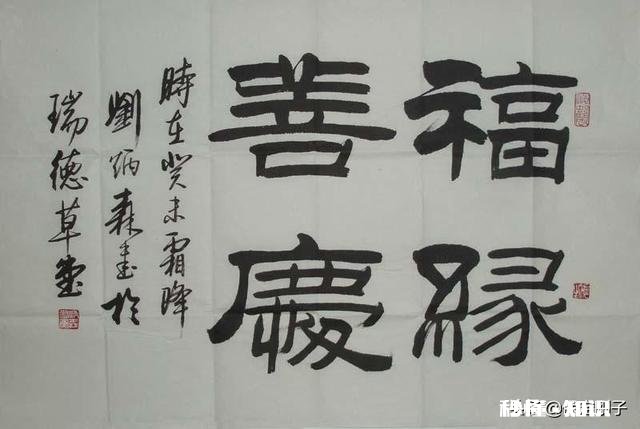 福緣
善慶
時在癸未霜降
劉炳森書於
瑞德草堂
秒懂知识